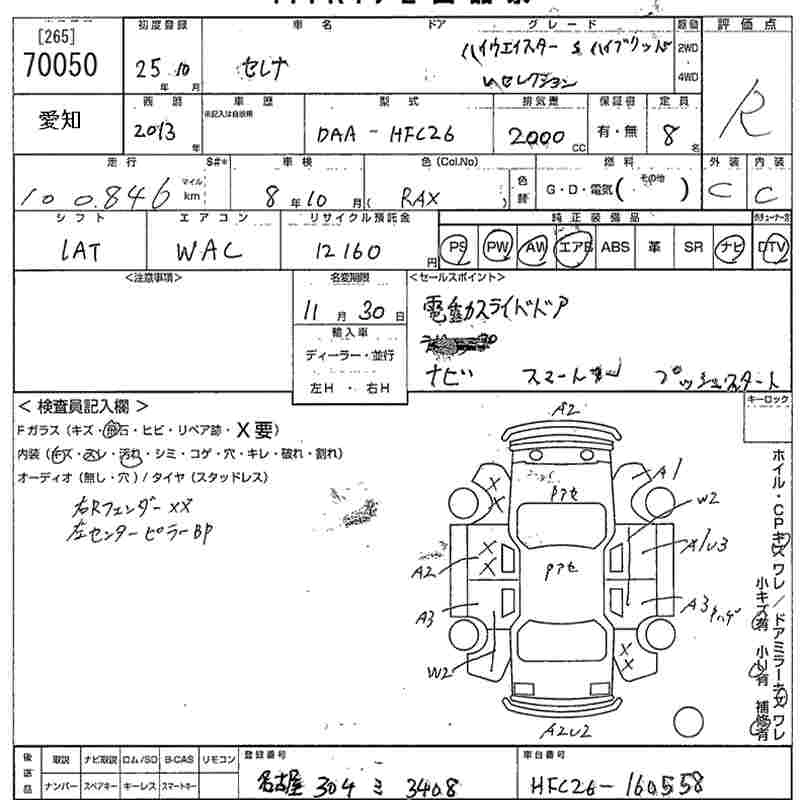 [265]
70050
初度登録 車名 ドア グレード 駆動 評価点
25年10月 セレナ ハイウェイスター S ハイブリッド 2WD
Vセレクション 4WD
R
愛知
西暦 車歴 型式 排気量 保証書 定員
依記入は自家用
2013年 DAA - HFC26 2000cc 有・無 8名
走行 S#* 車検 色(Col.No) 燃料 外装 内装
100.846 マイル km 8年10月 ( RAX ) 色替 G・D・電気( その他 ) C C
シフト エアコン リサイクル預託金 純正装備品
IAT WAC 12160円 PS PW AW エアB ABS 革 SR ナビ DTV
<注意事項> 名変期限 <セールスポイント>
11月30日 電動スライドドア
輸入車
ディーラー・並行
ナビ スマートキー プッシュスタート
左H ・ 右H
< 検査員記入欄 > キーロック
Fガラス (キズ・飛石・ヒビ・リペア跡・X要)
内装 (キズ・スレ・汚れ・シミ・コゲ・穴・キレ・破れ・割れ)
オーディオ (無し・穴) / タイヤ (スタッドレス)
右Rフェンダー XX
左センターピラー BP
A2
A1
W2
X X
Pアセ
A1U3
X X
A2
Pアセ
A3
A3
W2
X X
A2U2
ホイル・CPキズ ワレ / ドアミラーキズ ワレ
小キズ有 小U有 補修有
後送品 取説 ナビ取説 ロム/SD B-CAS リモコン 登録番号 車台番号
ナンバー スペアキー キーレス スマートキー 名古屋 304 ミ 3408 HFC26-160558